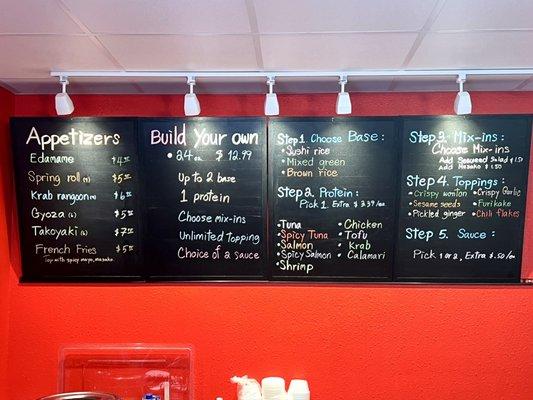 Appetizers
Edamame $4
Spring roll $5
Krab rangoon $6
Gyoza $5
Takoyaki $7
French Fries $5
Top with spicy mayo, masako
Build Your own
• 24 oz $12.99
Up to 2 base
1 protein
Choose mix-ins
Unlimited topping
Choice of a sauce
Step 1. Choose Base:
• Sushi rice
• Mixed green
• Brown rice
Step 2. Protein:
Pick 1. Extra $ 2.39
• Tuna
• Spicy Tuna
• Salmon
• Spicy Salmon
• Shrimp
• Chicken
• Tofu
• Krab
• Calamari
Step 3. Mix-ins:
Choose Mix-ins
Add Seaweed Salad $1.50
Add Masako $1.50
Step 4. Toppings:
• Crispy wonton
• Sesame seeds
• Pickled ginger
• Crispy Garlic
• Furikake
• Chili flakes
Step 5. Sauce:
Pick 1 or 2, Extra $.50